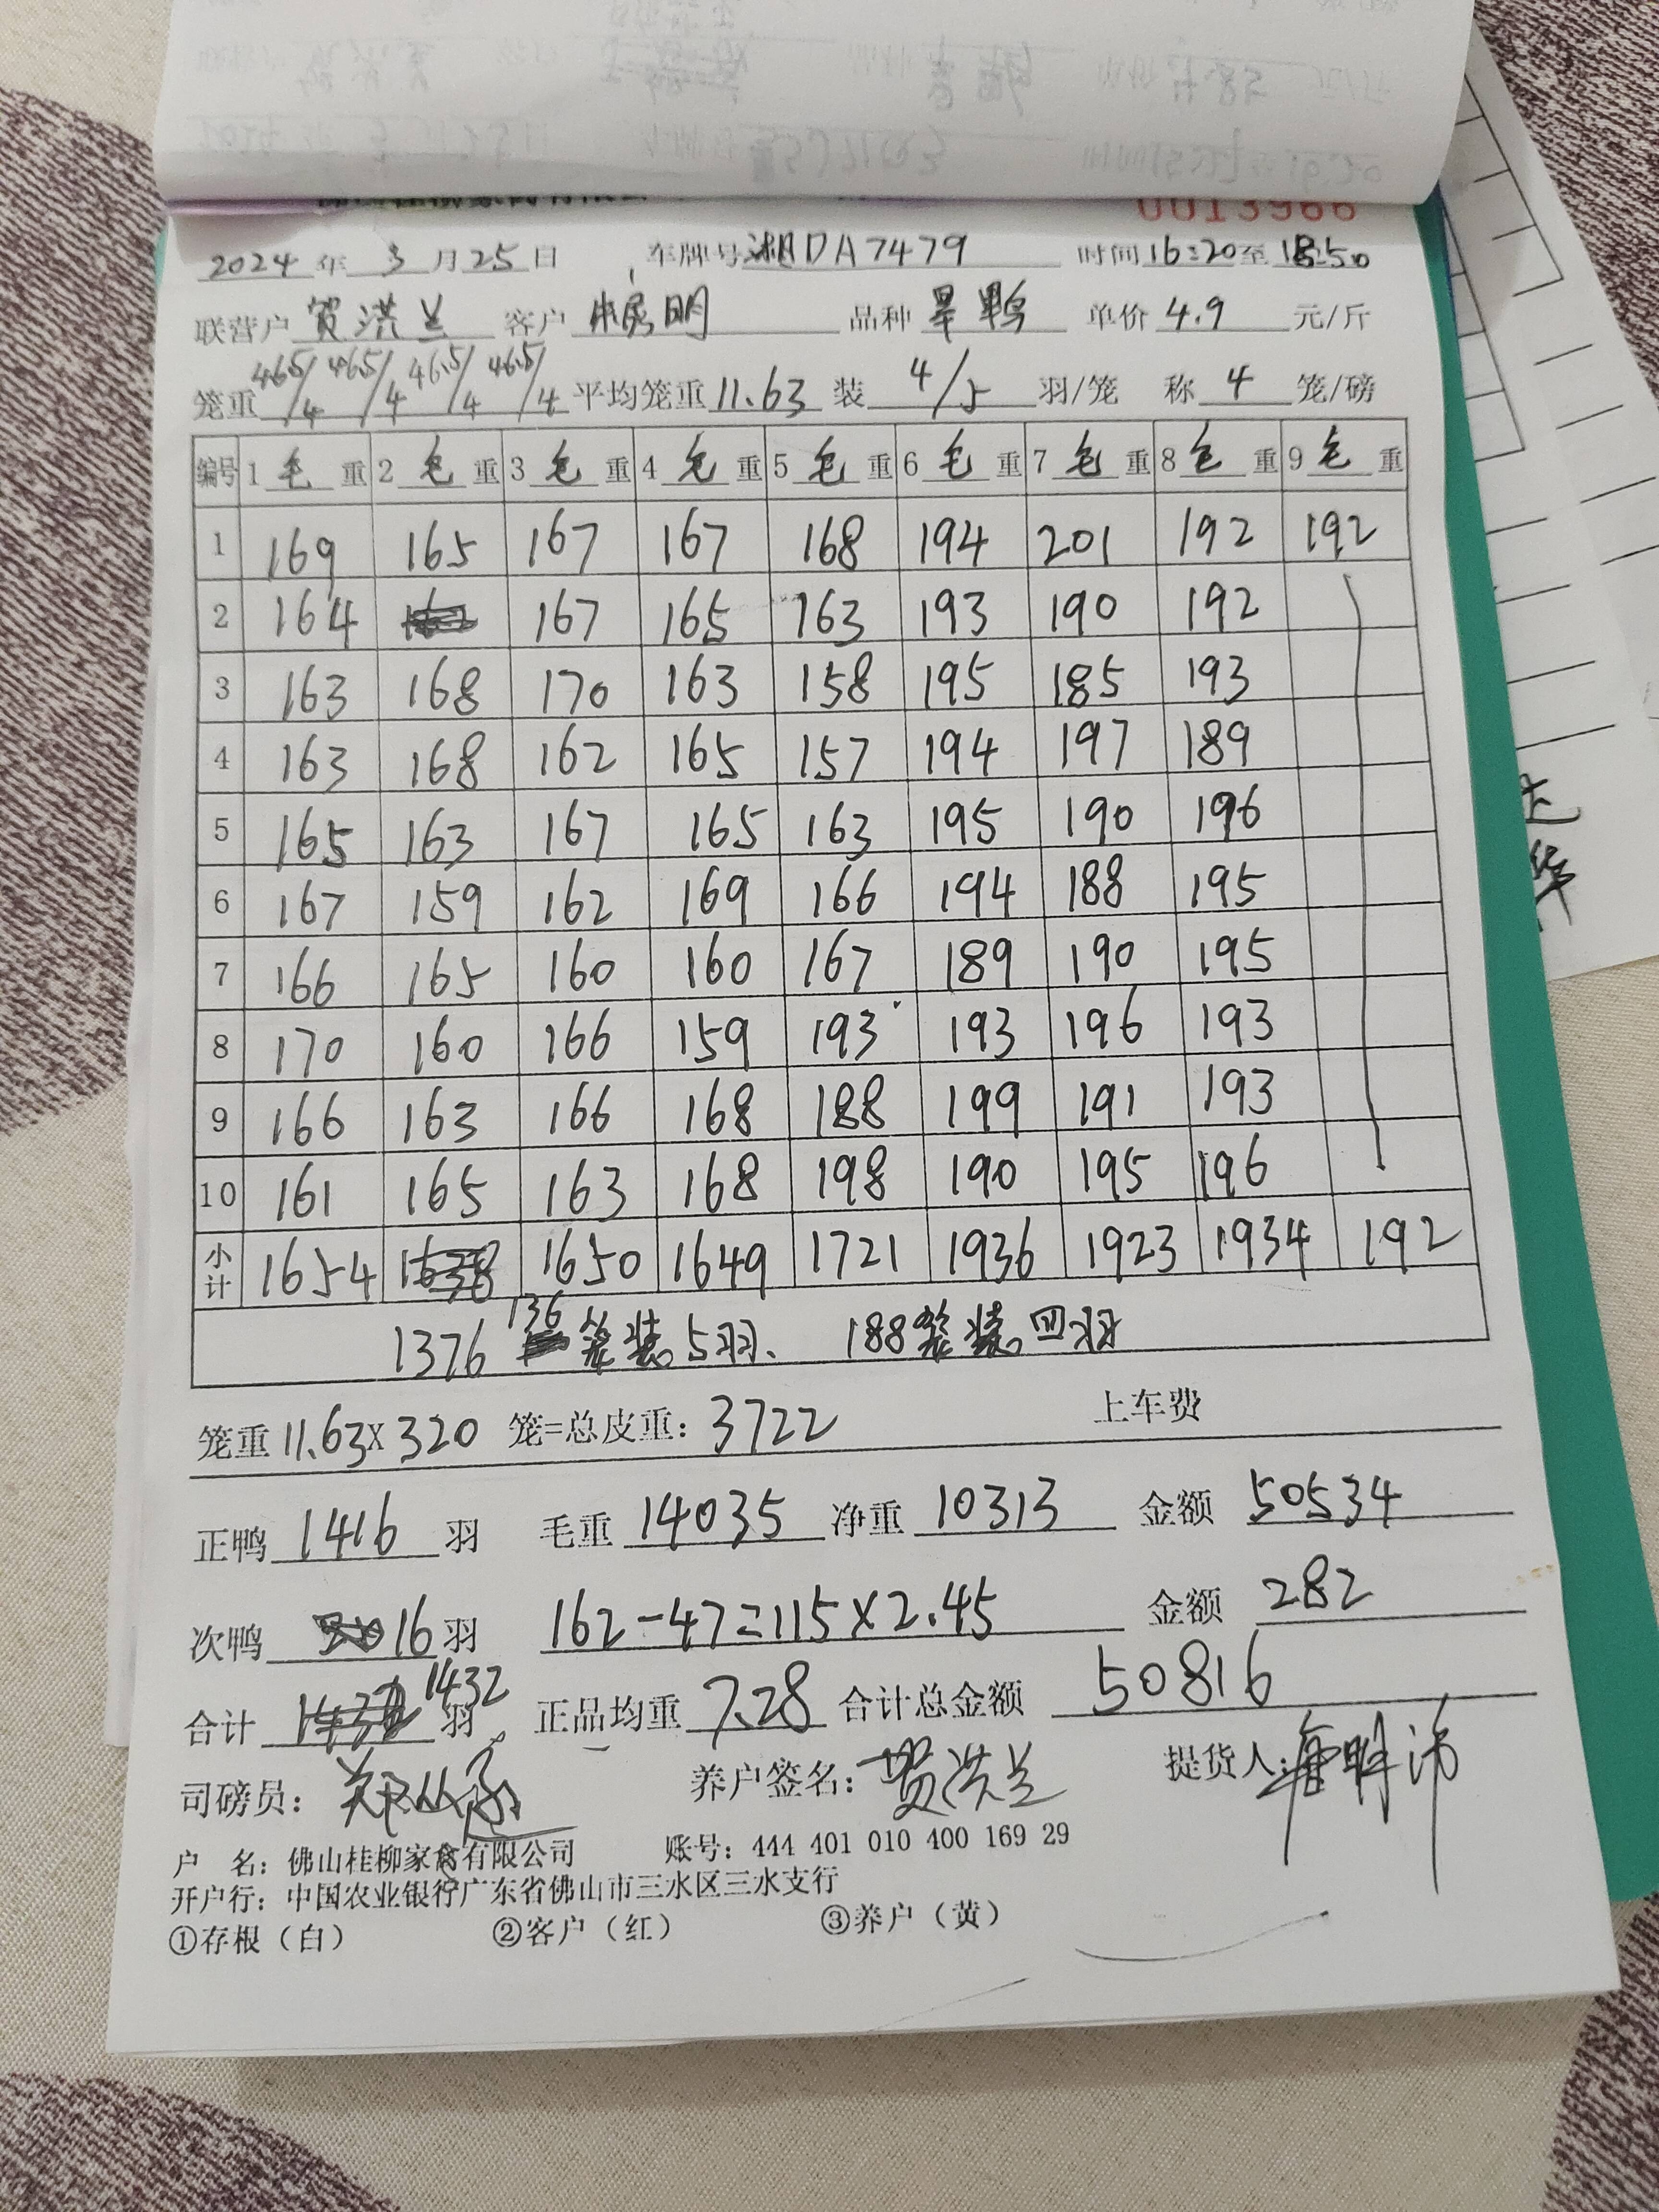 0013966
2024年3月25日 车牌号湘DA7479 时间16:20至18:50
联营户 贺洪兰 客户 明 品种 旱鸭 单价 4.9 元/斤
笼重 46.5/4 46.5/4 46.5/4 46.5/4 平均笼重 11.63 装 4/5 羽/笼 称 4 笼/磅
编号 1毛重 2毛重 3毛重 4毛重 5毛重 6毛重 7毛重 8毛重 9毛重
1 169 165 167 167 168 194 201 192 192
2 164 167 165 163 193 190 192
3 163 168 170 163 158 195 185 193
4 163 168 162 165 157 194 197 189
5 165 163 167 165 163 195 190 196
6 167 159 162 169 166 194 188 195
7 166 165 160 160 167 189 190 195
8 170 160 166 159 193 193 196 193
9 166 163 166 168 188 199 191 193
10 161 165 163 168 198 190 195 196
小计 1654 1638 1650 1649 1721 1936 1923 1934 192
1376 136笼装5羽、 188笼装四羽
笼重 11.63×320 笼=总皮重: 3722 上车费
正鸭 1416 羽 毛重 14035 净重 10313 金额 50534
次鸭 16 羽 162-47=115×2.45 金额 282
合计 1432 羽 正品均重 7.28 合计总金额 50816
司磅员: 养户签名: 贺洪兰 提货人: 唐明
户 名: 佛山桂柳家禽有限公司 账号: 444 401 010 400 169 29
开户行: 中国农业银行广东省佛山市三水区三水支行
①存根（白） ②客户（红） ③养户（黄）